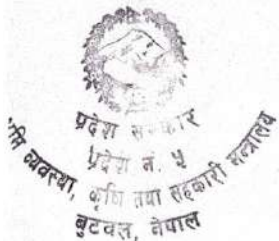 प्रदेश सरकार
प्रदेश नं. ५
व्यवस्था, कृषि तथा सहकारी मन्त्रालय
बुटवल, नेपाल